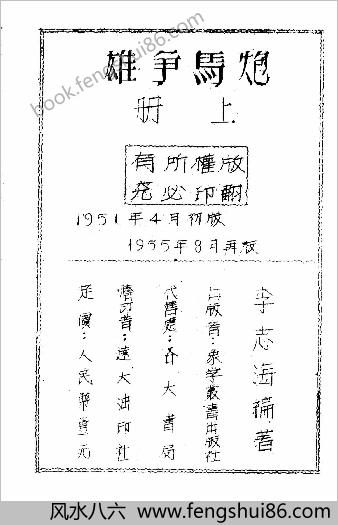 炮馬爭雄
上冊
版權所有
翻印必究
1951年4月初版
1955年8月再版
李志海編著
出版者：象学叢書出版社
代售處：各大書局
僭印者：達大油印社
定價：人民幣壹元
book.fengshui86.com
风水八六 - www.fengshui86.com